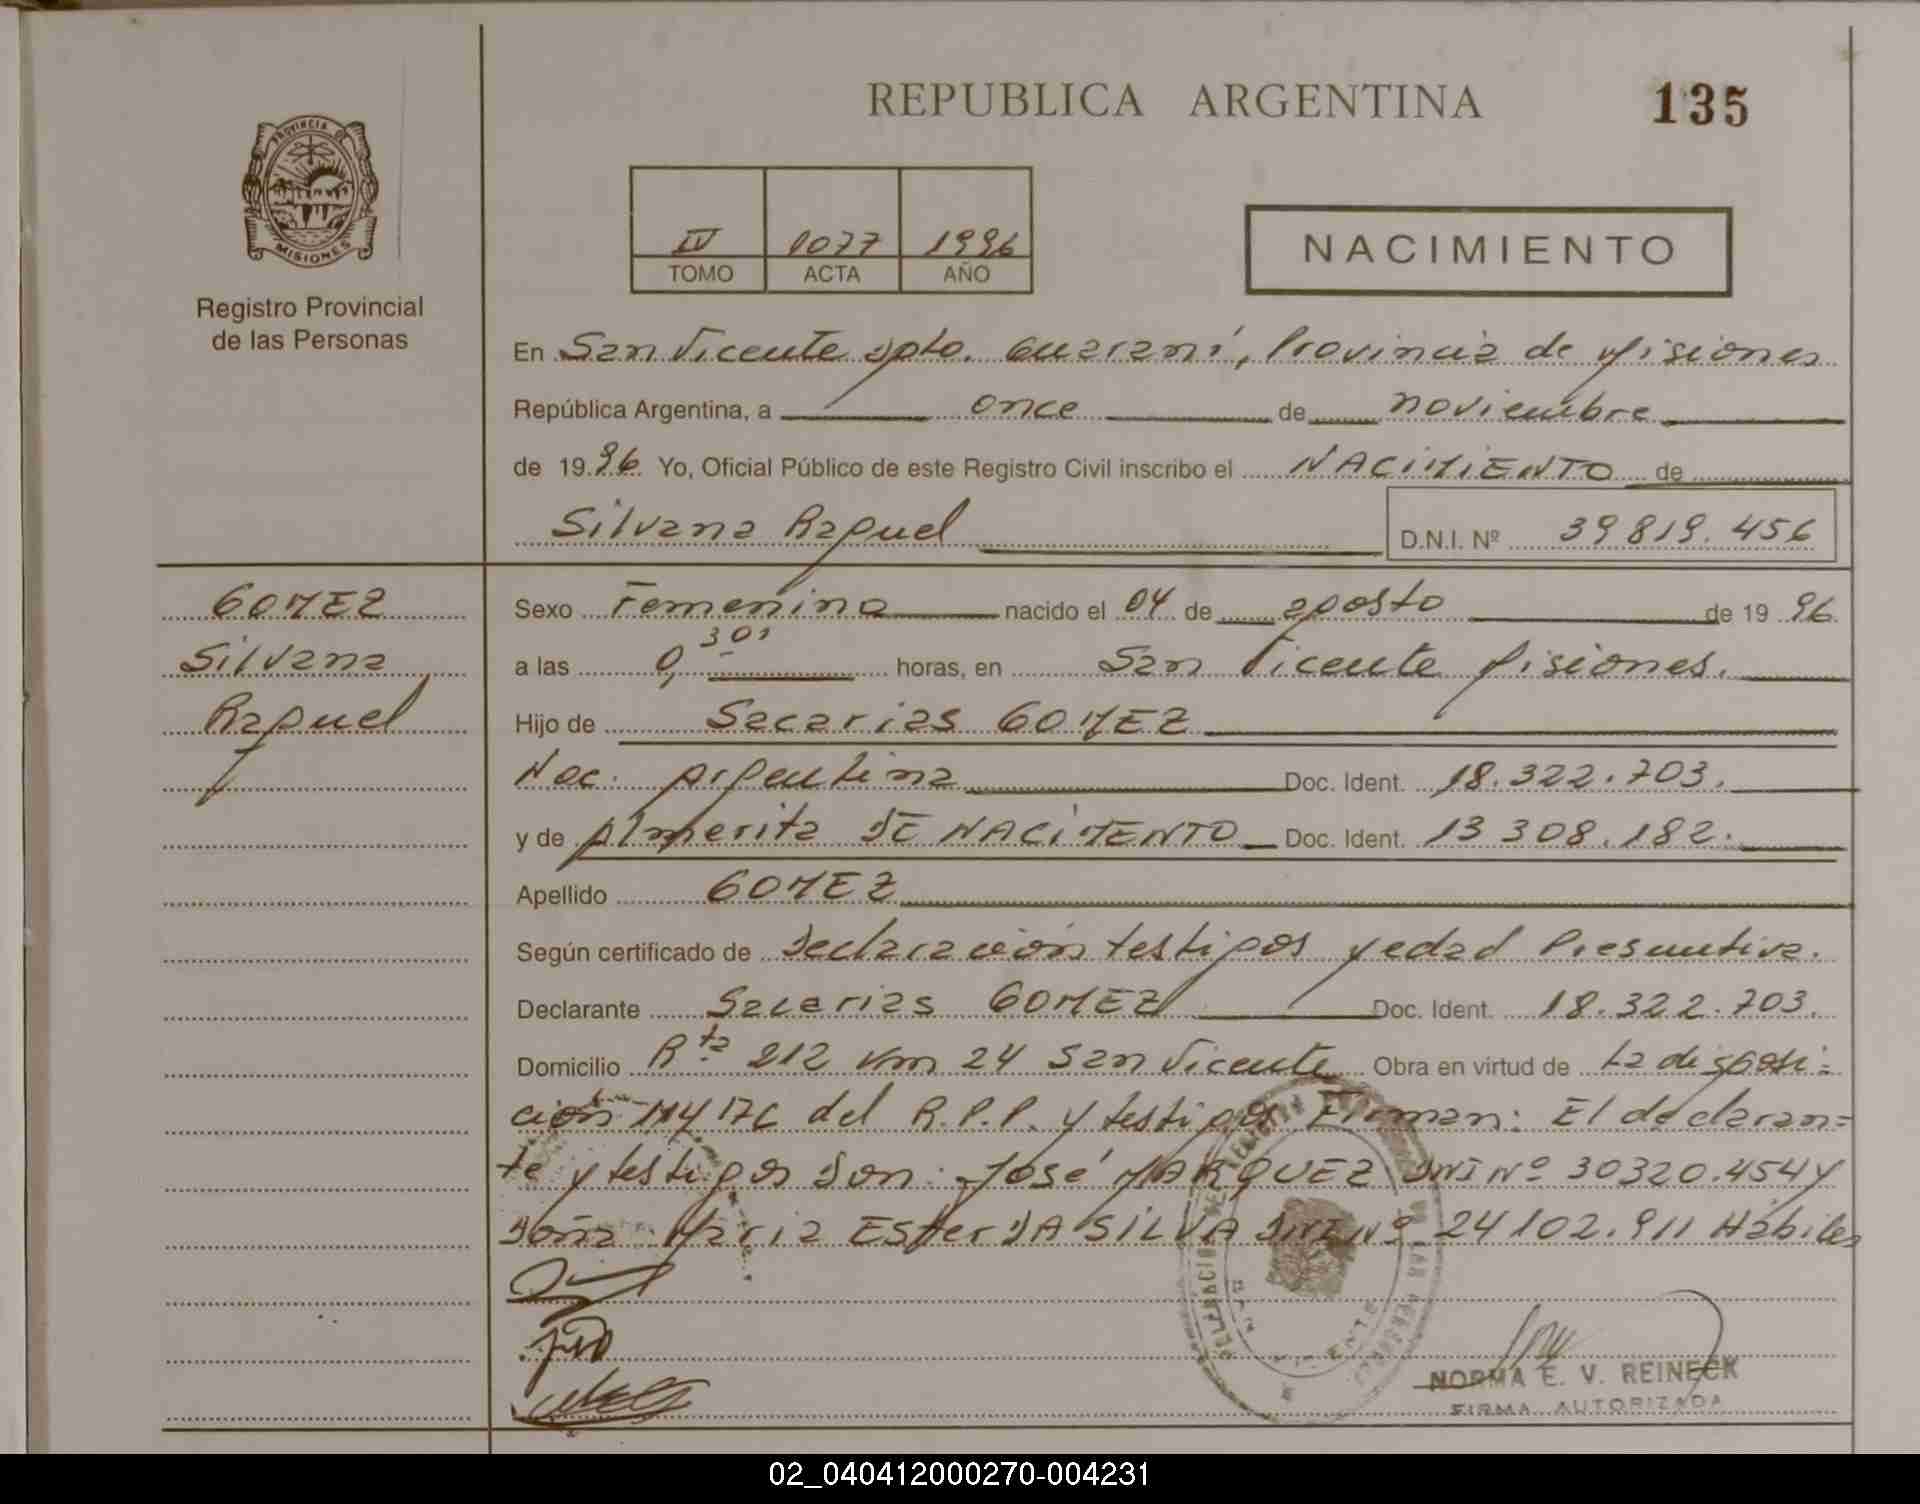 REPUBLICA ARGENTINA
135
PROVINCIA DE
MISIONES
Registro Provincial
de las Personas
IV 1077 1996
TOMO ACTA AÑO
NACIMIENTO
En San Vicente Dpto. Guaraní, Provincia de Misiones
República Argentina, a once de noviembre
de 19 96 Yo, Oficial Público de este Registro Civil inscribo el NACIMIENTO de
Silvana Raquel
D.N.I. Nº 39819.456
GOMEZ
Silvana
Raquel
Sexo Femenino nacido el 04 de agosto de 19 96
a las 0,30' horas, en San Vicente Misiones.
Hijo de Sacarias GOMEZ
Nac. Argentina Doc. Ident. 18.322.703.
y de Almerita DE NACIMENTO Doc. Ident. 13 308.182.
Apellido GOMEZ
Según certificado de Declaración testigos y edad Presuntiva.
Declarante Sacarias GOMEZ Doc. Ident. 18.322.703.
Domicilio Rta 212 Km 24 San Vicente Obra en virtud de La disposi=
ción del R.P.P. y testigos Firman: El declaran=
te y testigos Son: José MARQUEZ DNI Nº 30320.454 y
Doña Maria Ester DA SILVA DNI Nº 24102.911 Hábiles
NORMA E. V. REINECK
FIRMA AUTORIZADA
02_040412000270-004231